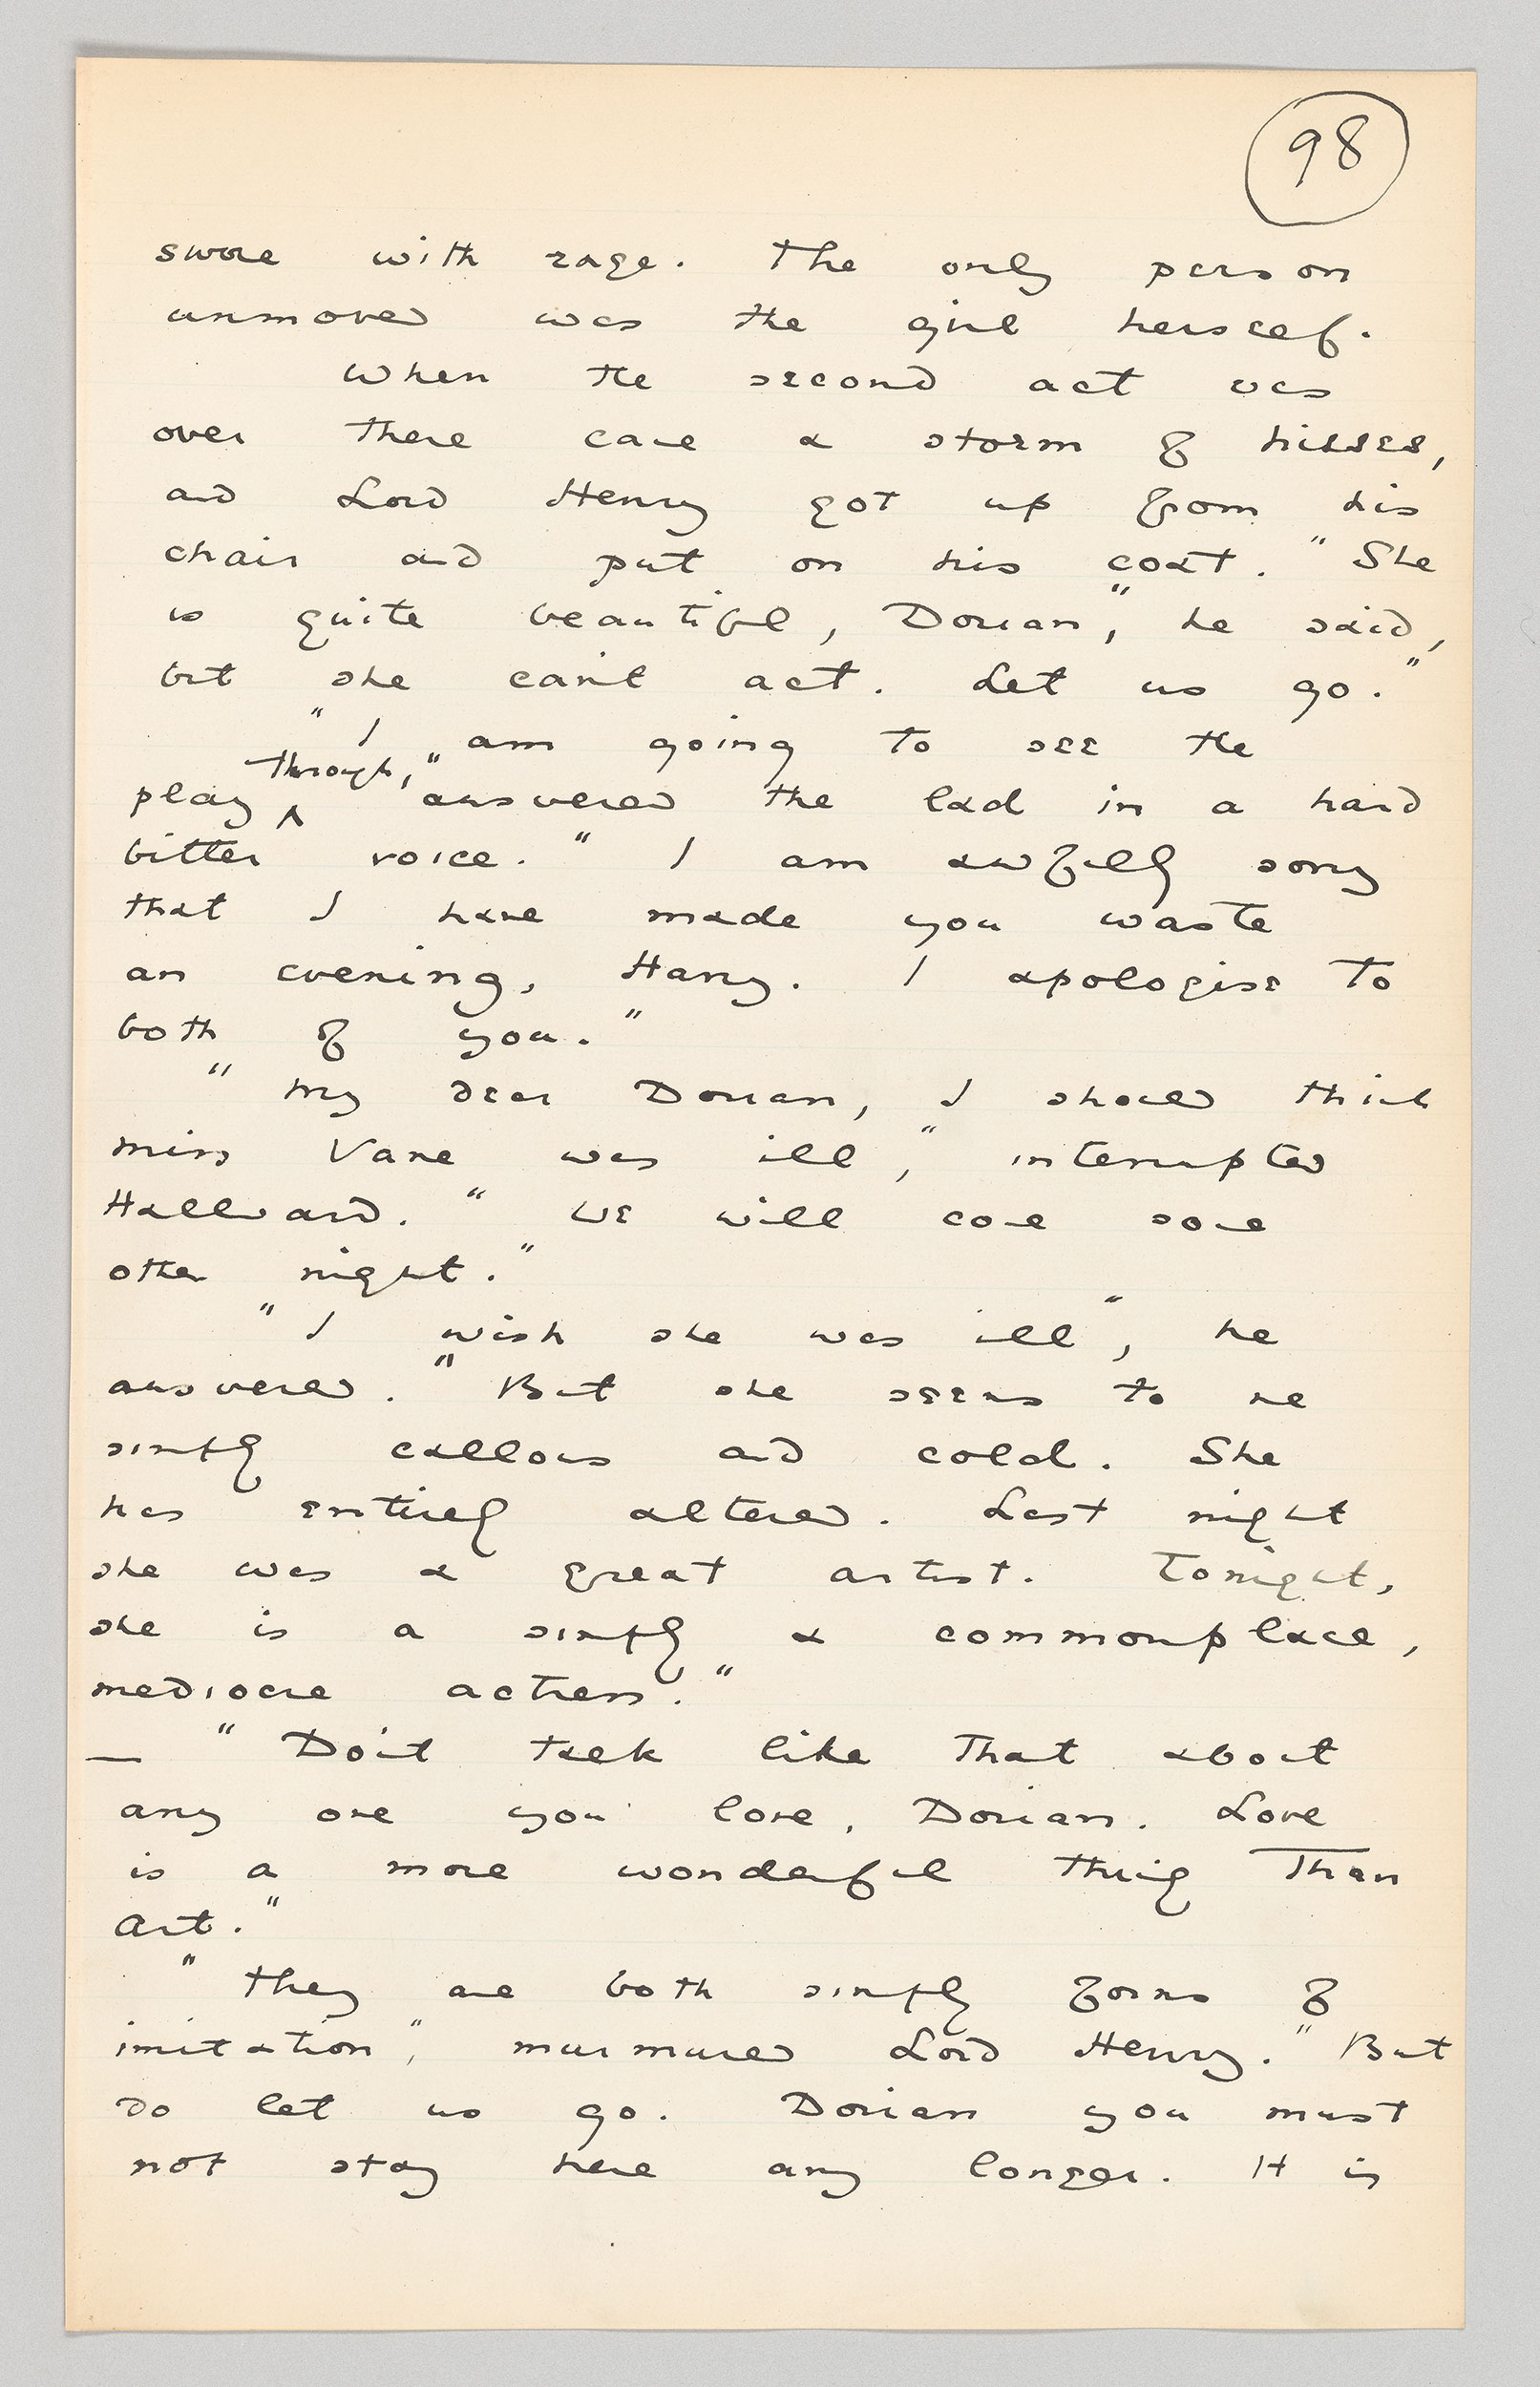 98
swore with rage. The only person
unmoved was the girl herself.
When the second act was
over there came a storm of hisses,
and Lord Henry got up from his
chair and put on his coat. "She
is quite beautiful, Dorian", he said,
but she can't act. Let us go."
"I am going to see the
play through," answered the lad in a hard
bitter voice. "I am awfully sorry
that I have made you waste
an evening, Harry. I apologise to
both of you."
"My dear Dorian, I should think
Miss Vane was ill", interrupted
Hallward. "We will come some
other night."
"I wish she was ill", he
answered. "But she seems to me
simply callous and cold. She
has entirely altered. Last night
she was a great artist. Tonight,
she is a simply a commonplace,
mediocre actress."
— "Don't talk like that about
any one you love, Dorian. Love
is a more wonderful thing than
Art."
"They are both simply forms of
imitation", murmured Lord Henry. "But
do let us go. Dorian you must
not stay here any longer. It is